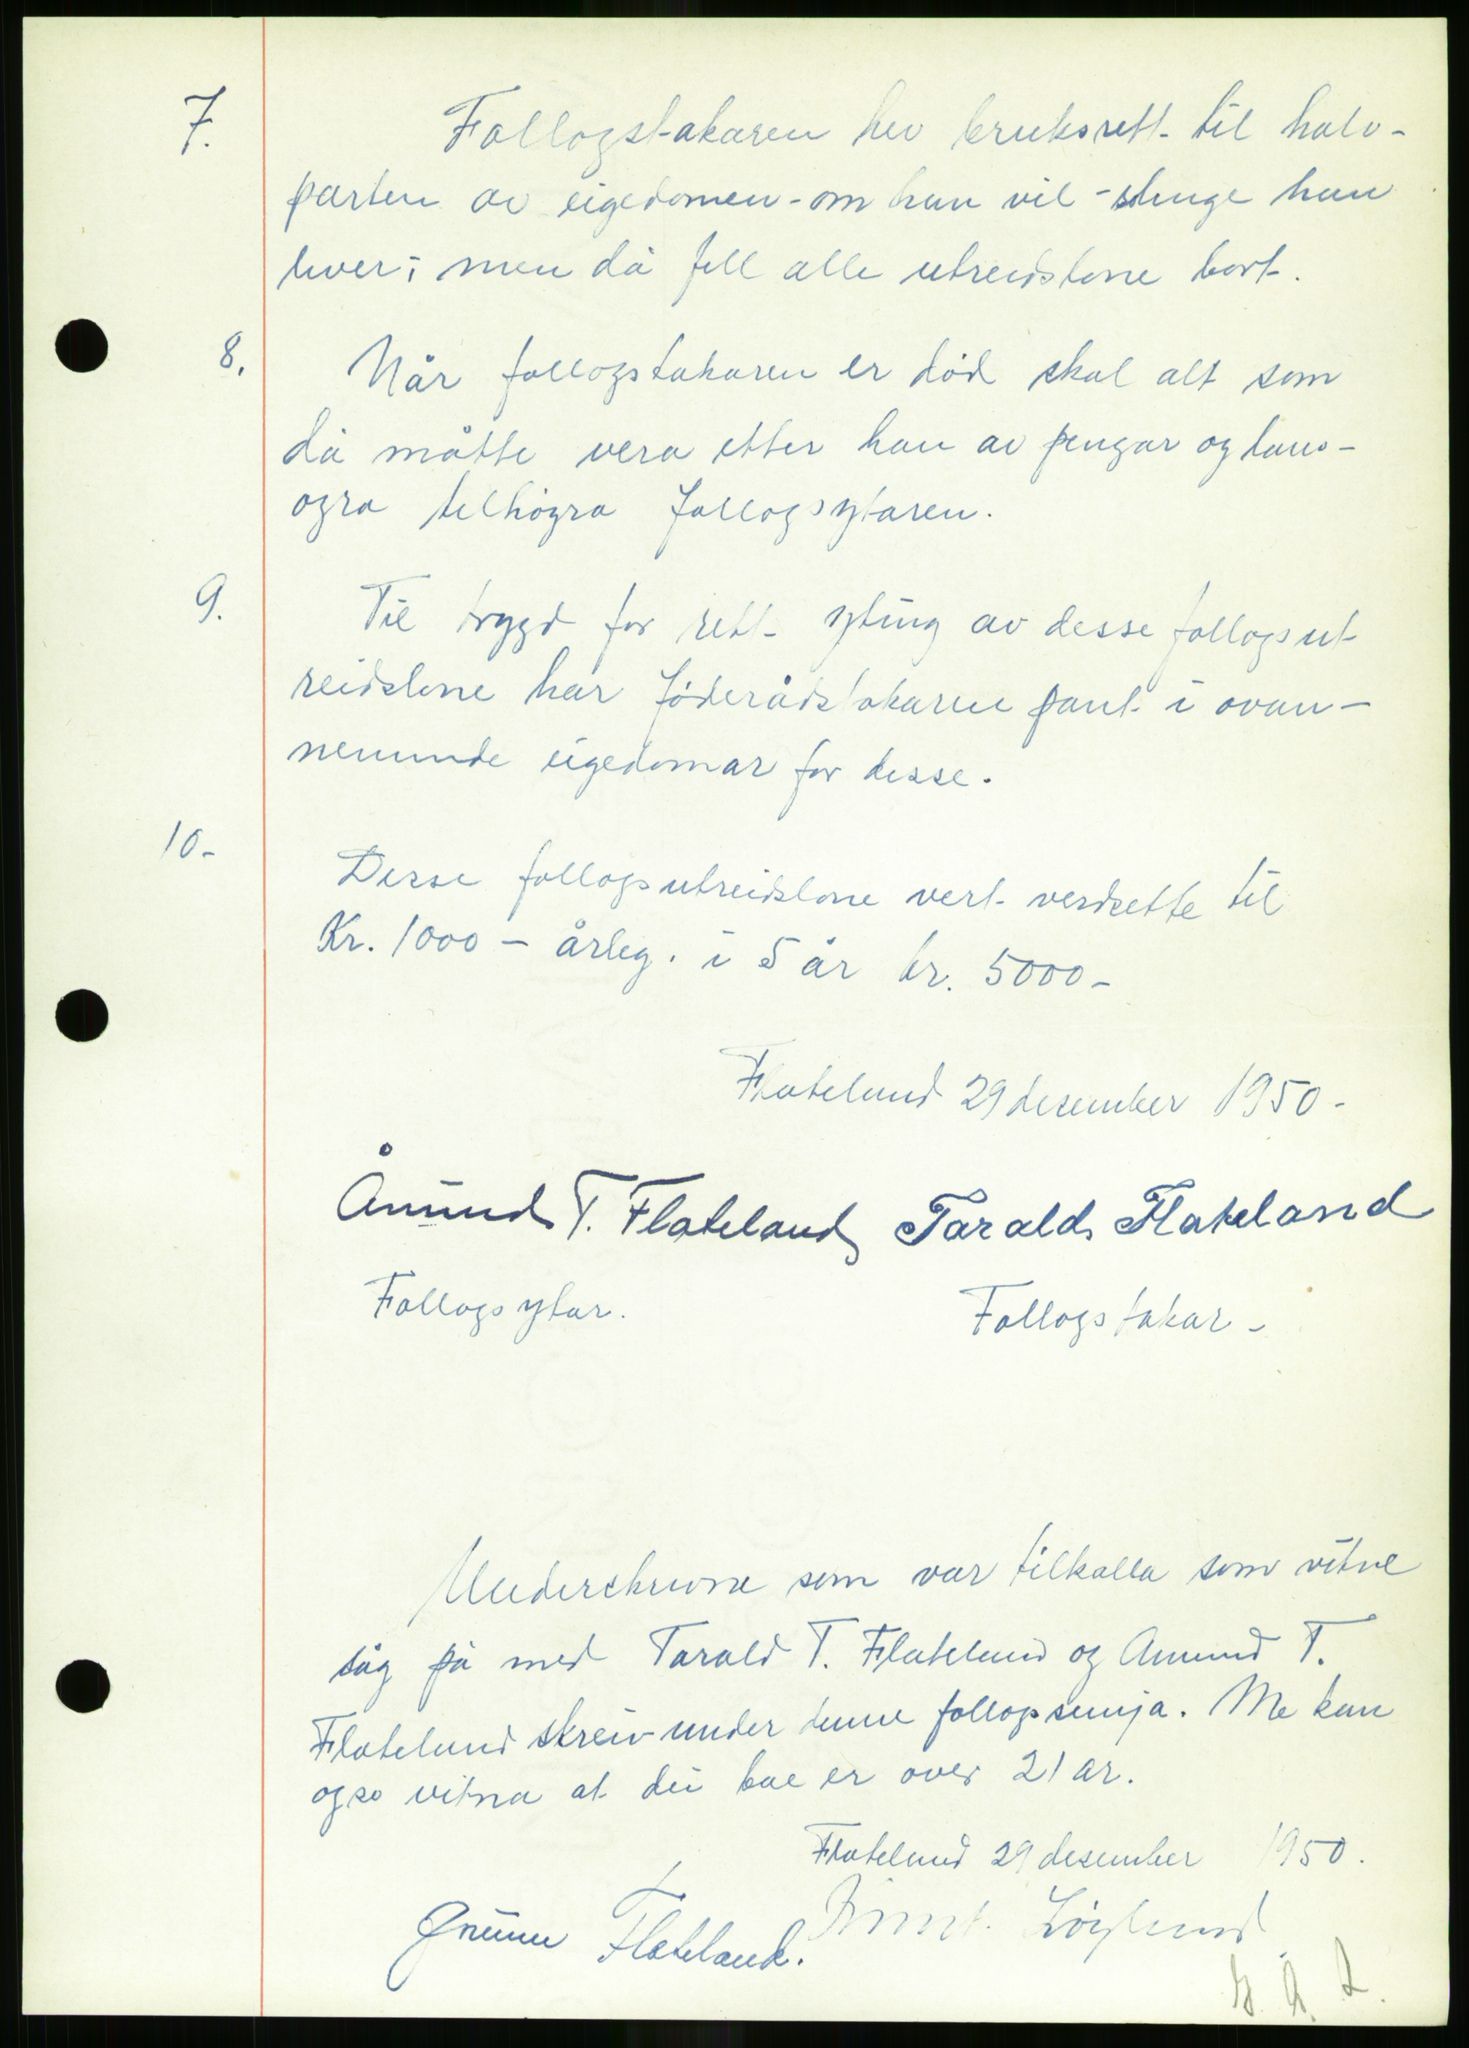 7. Follogstakaren hev bruksrett til halv-
parten av eigedomen - om han vil - slenge han
liver; men då fell alle utreidslone bort.
8. Når follogstakaren er död skal alt som
då måtte vera etter han av pengar og laus-
ogra tilhögra follogsytaren.
9. Til trygd for rett yting av desse follogsut
reidslone har föderådstakaren pant i ovan-
nemnde eigedomar for desse.
10- Desse follogsutreidslone vert verdsette til
Kr. 1000 - årleg. i 5 år kr. 5000-
Flateland 29 desember 1950-
Åmund T. Flateland Tarald Flateland
Follogsytar. Follogstakar-
Underskrivne som var tilkalla som vitne
såg på med Tarald T. Flateland og Amund T.
Flateland skreiv under denne follogssemja. Me kan
ogso vitna at dei bae er over 21 år.
Flateland 29 desember 1950.
Flateland.